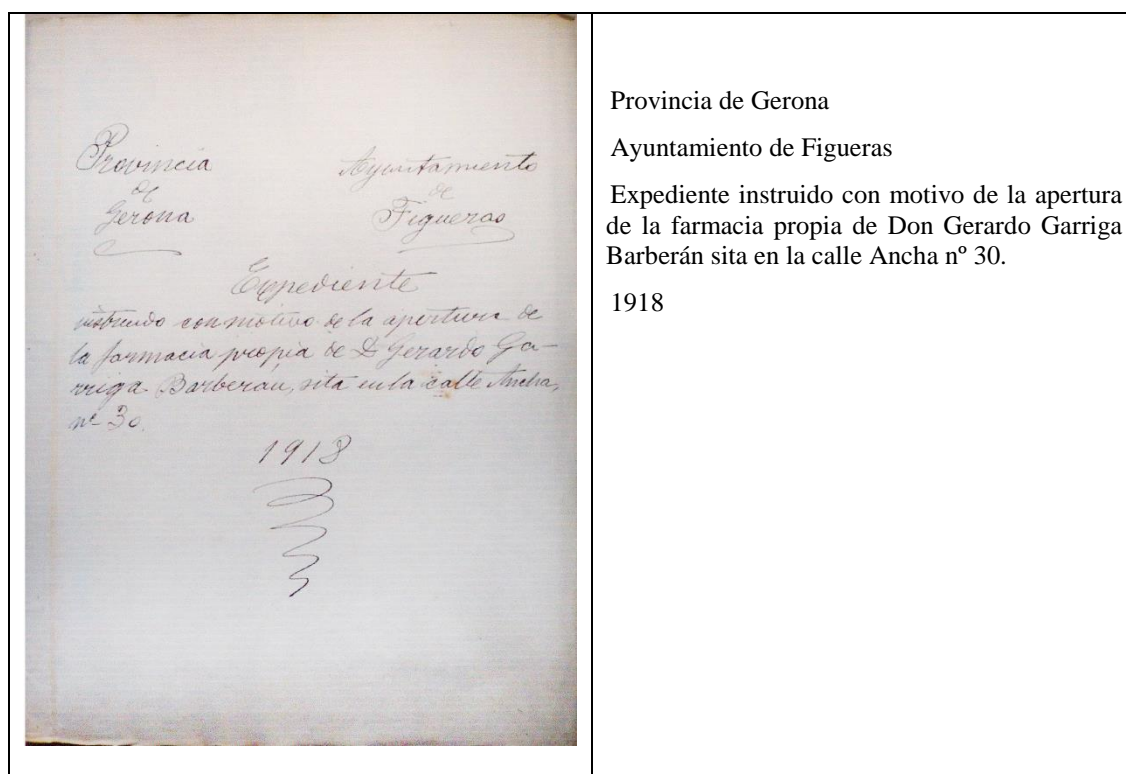 Provincia
de
Gerona
Ayuntamiento
de
Figueras
Expediente
instruido con motivo de la apertura de
la farmacia propia de D Gerardo Ga-
rriga Barberán, sita en la calle Ancha,
nº 30.
1918
Provincia de Gerona
Ayuntamiento de Figueras
Expediente instruido con motivo de la apertura
de la farmacia propia de Don Gerardo Garriga
Barberán sita en la calle Ancha nº 30.
1918